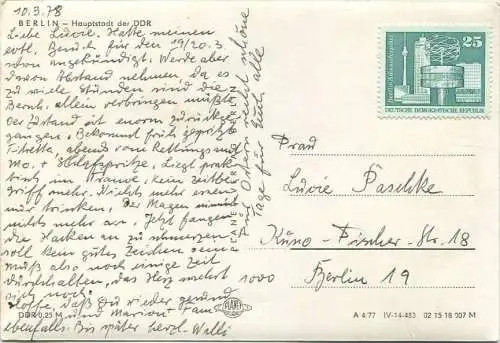 10.3.78
BERLIN – Hauptstadt der DDR
Liebe Luzie. Hatte meinen
evtl. Besuch für den 19/20.3.
schon angekündigt. Werde aber
davon Abstand nehmen, da es
zu viele Stunden sind die
Bernh. allein verbringen müßte.
Der Zustand ist enorm zurückge-
gangen. Bekommt früh gespritzt
abends vom Rettungsamt
Mo. + Hilfsspritze. Liegt prak-
tisch im Trance, kein Zeitbe-
griff mehr. Nichts mehr essen
und trinken. Der Magen nimmt
nichts mehr an. Jetzt fangen
die Hacken an zu schmerzen
soll kein gutes Zeichen sein.
Muß also noch einige Zeit
durchhalten, das Herz
noch.
Hoffe, daß Du wieder gesund
und Marion + Fam.
ebenfalls. Bis später herzl. Willi
An Ostern recht schöne
Tage für Euch alle
PLANET-VERLAG BERLIN
25
DEUTSCHE DEMOKRATISCHE REPUBLIK
Frau
Luzie Paschke
Kuno-Fischer-Str. 18
1000 Berlin 19
DDR 0,25 M
A 4/77 IV-14-483 02 15 18 107 M